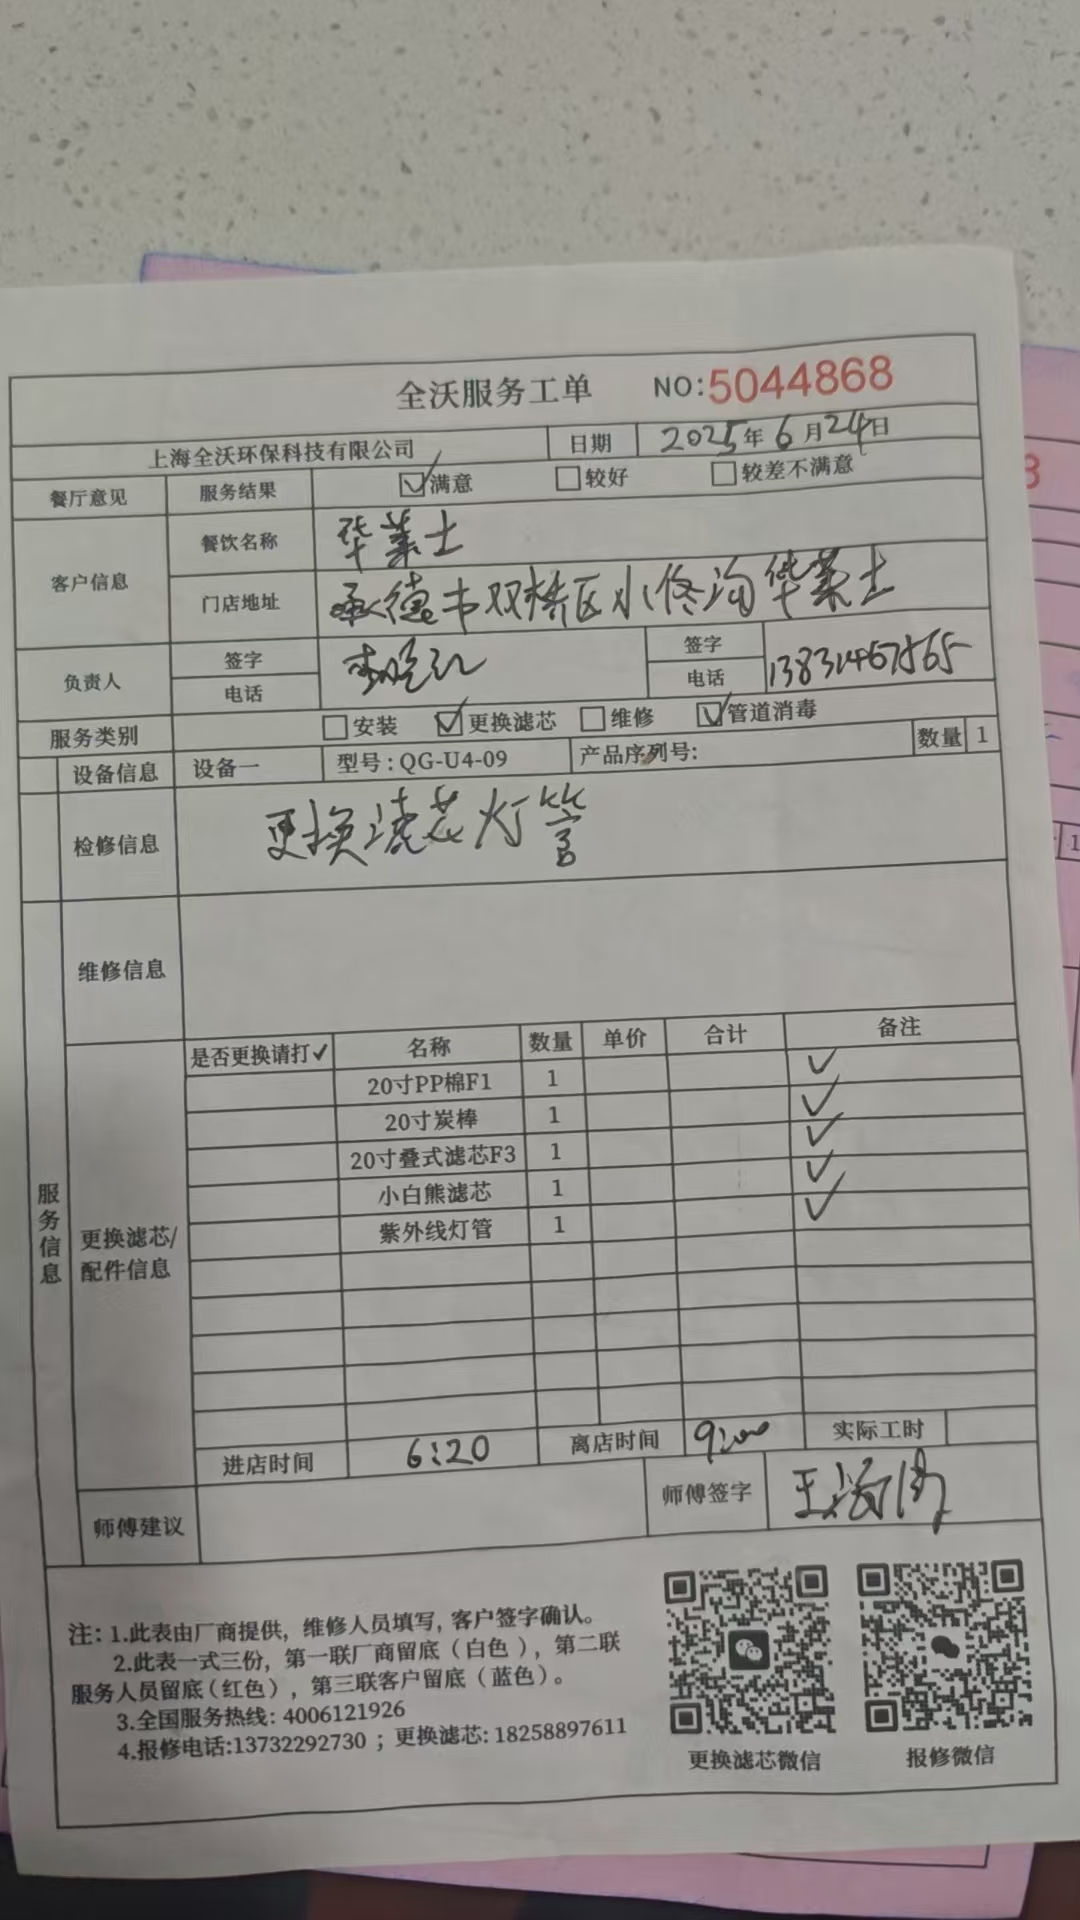 全沃服务工单 NO:5044868
上海全沃环保科技有限公司 日期 2025年6月24日
餐厅意见 服务结果 ☑满意 □较好 □较差不满意
客户信息 餐饮名称 华莱士
门店地址 承德市双桥区小佟沟华莱士
负责人 签字 电话 签字 电话 13831467565
服务类别 □安装 ☑更换滤芯 □维修 ☑管道消毒
设备信息 设备一 型号:QG-U4-09 产品序列号: 数量 1
检修信息 更换滤芯灯管
维修信息
服务信息
更换滤芯/配件信息
是否更换请打✓ 名称 数量 单价 合计 备注
20寸PP棉F1 1 ✓
20寸炭棒 1 ✓
20寸叠式滤芯F3 1 ✓
小白熊滤芯 1 ✓
紫外线灯管 1 ✓
进店时间 6:20 离店时间 9:00 实际工时
师傅建议 师傅签字
注: 1.此表由厂商提供, 维修人员填写, 客户签字确认。
2.此表一式三份, 第一联厂商留底(白色), 第二联
服务人员留底(红色), 第三联客户留底(蓝色)。
3.全国服务热线: 4006121926
4.报修电话:13732292730 ; 更换滤芯: 18258897611
更换滤芯微信 报修微信